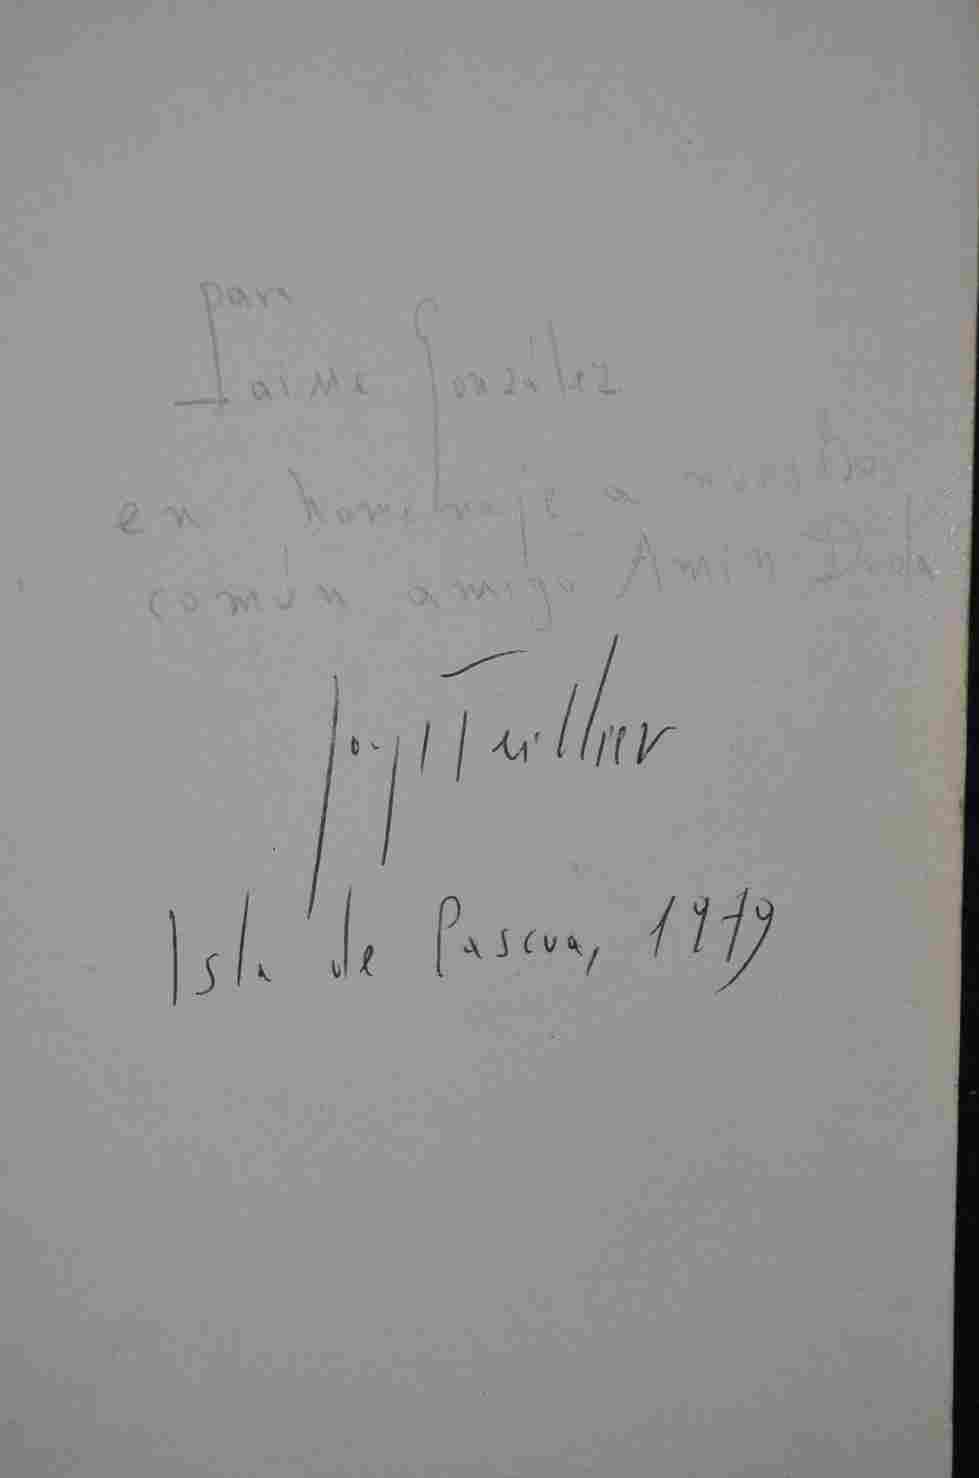 para
Jaime González
en homenaje a nuestro
común amigo Amin Dada
Jorge Teillier
Isla de Pascua, 1979